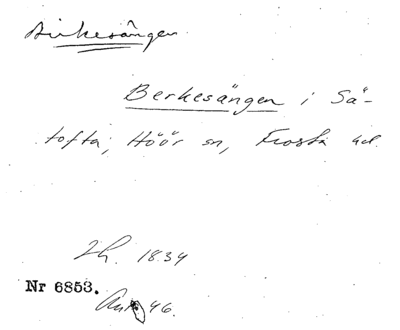 Birkesången
Berkesängen i Sä-
tofta, Höör sn, Frosta hd.
Lh. 1834
Nr 6853.
46.